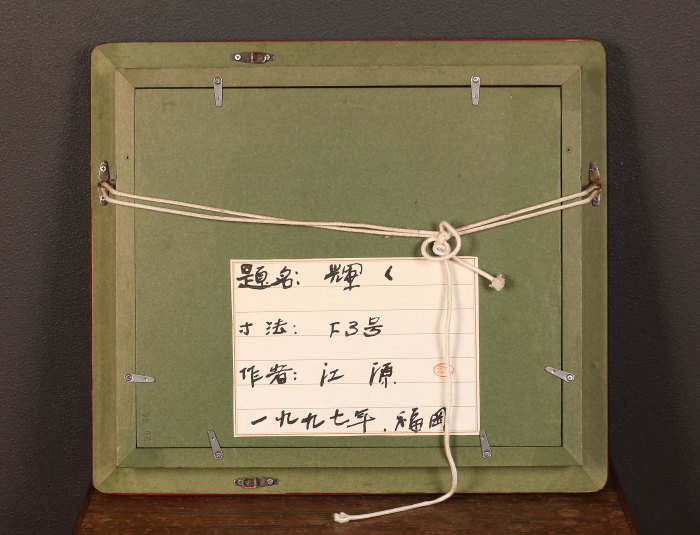 題名: 輝く
寸法: F3号
作者: 江 源
一九九七年.福岡